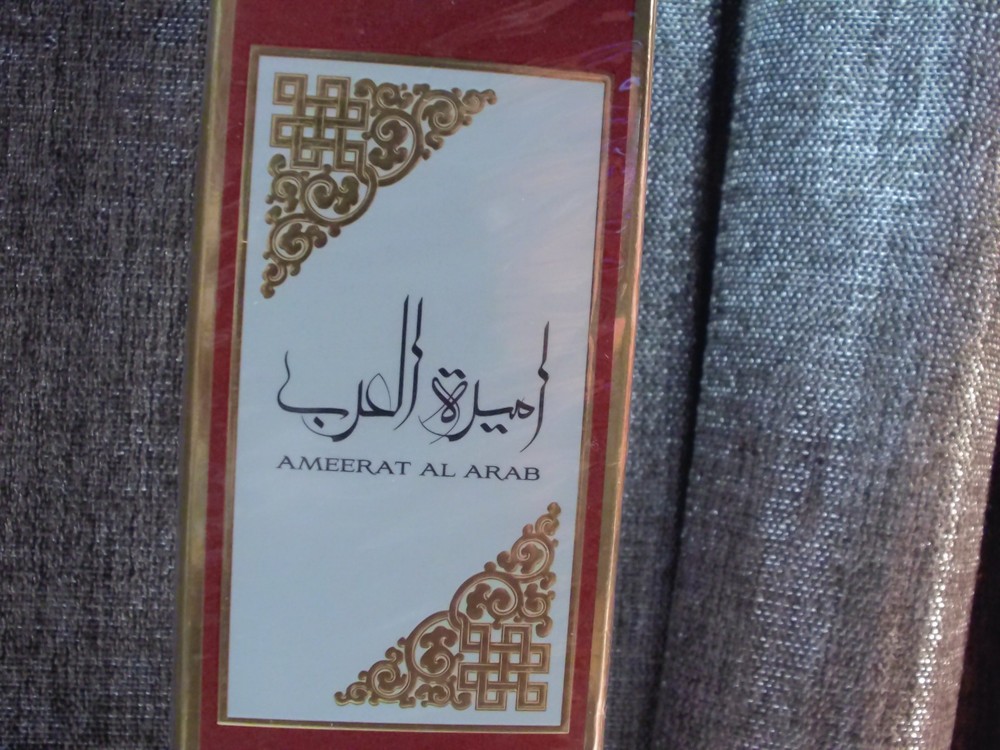 اميرة العرب
AMEERAT AL ARAB